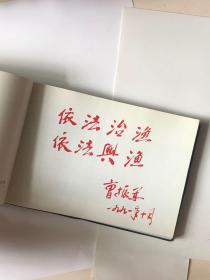 依法治渔
依法興渔
曹振华
一九九一年十月